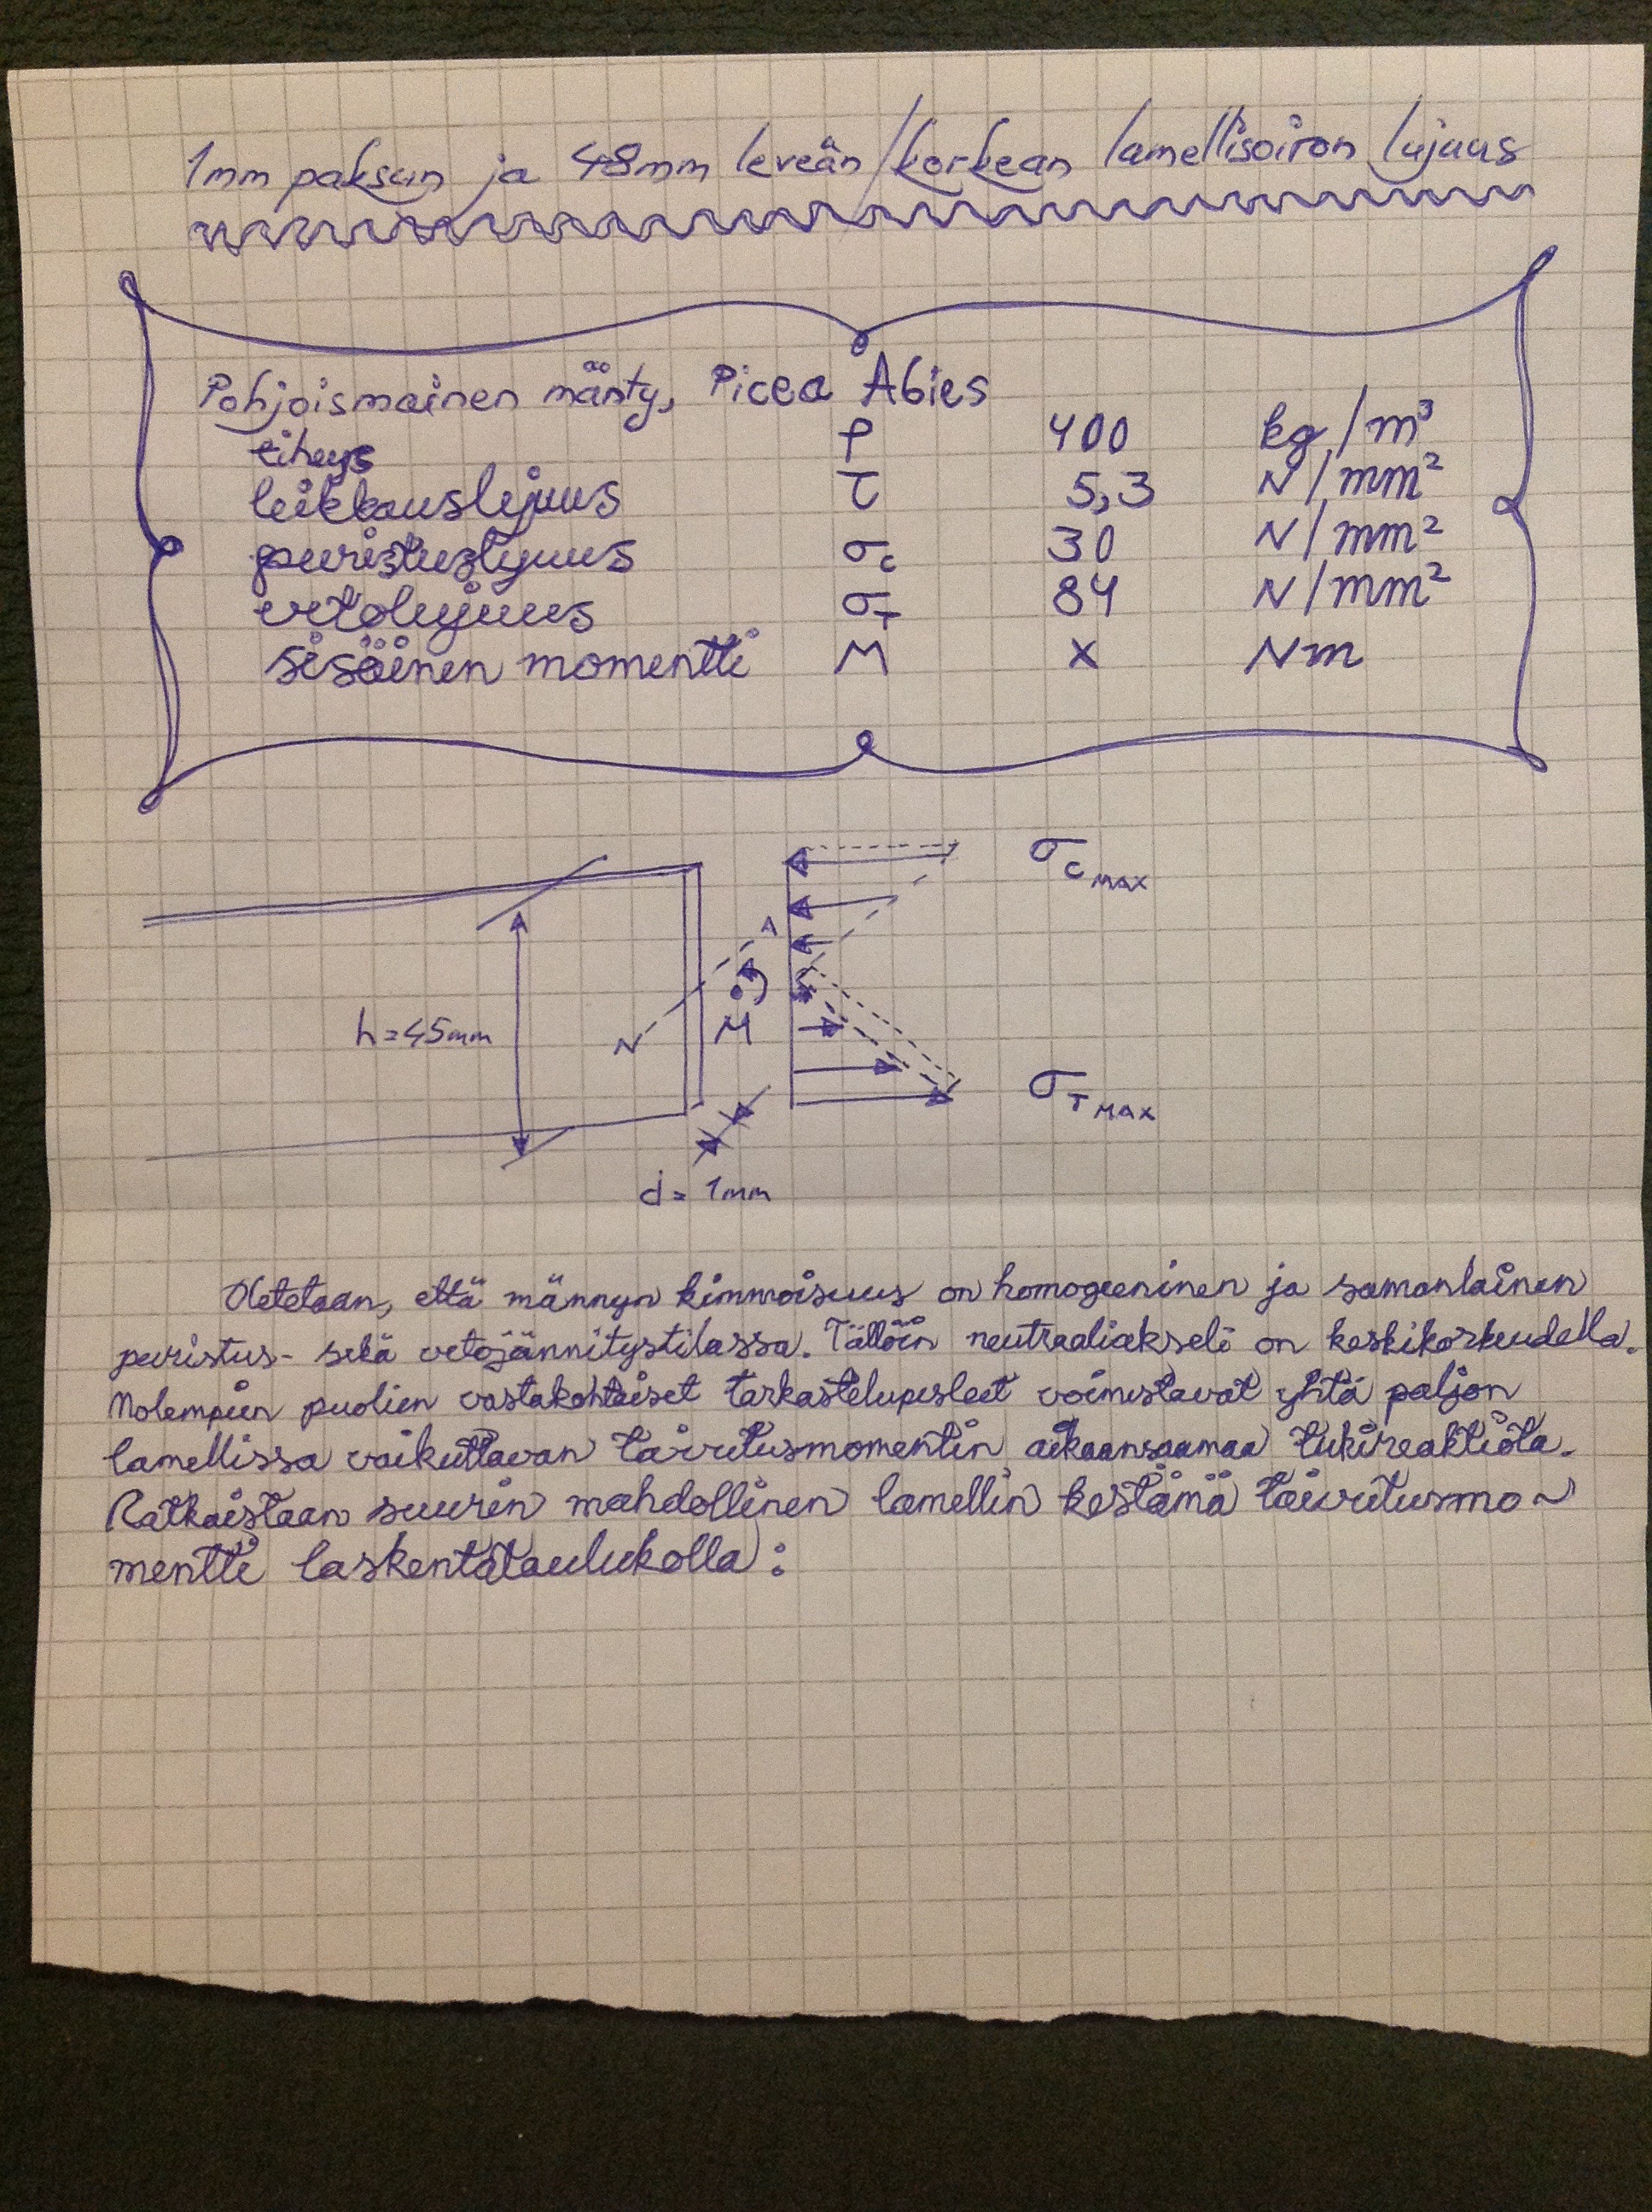 1mm paksun ja 48mm leveän/korkean lamellisoiron lujuus
Pohjoismainen mänty, Picea Abies
tiheys ρ 400 kg/m³
leikkauslujuus τ 5,3 N/mm²
puristuslujuus σc 30 N/mm²
vetolujuus σT 84 N/mm²
sisäinen momentti M x Nm
σCMAX
A
h=45mm
N
M
σTMAX
d= 1mm
Oletetaan, että männyn kimmoisuus on homogeeninen ja samanlainen
puristus- sekä vetojännitystilassa. Tällöin neutraaliakseli on keskikorkeudella.
Molempien puolien vastakohtaiset tarkastelupisteet voimistavat yhtä paljon
lamellissa vaikuttavan taivutusmomentin aikaansaamaa tukireaktiota.
Ratkaistaan suurin mahdollinen lamellin kestämä taivutusmo~
mentti laskentataulukolla: